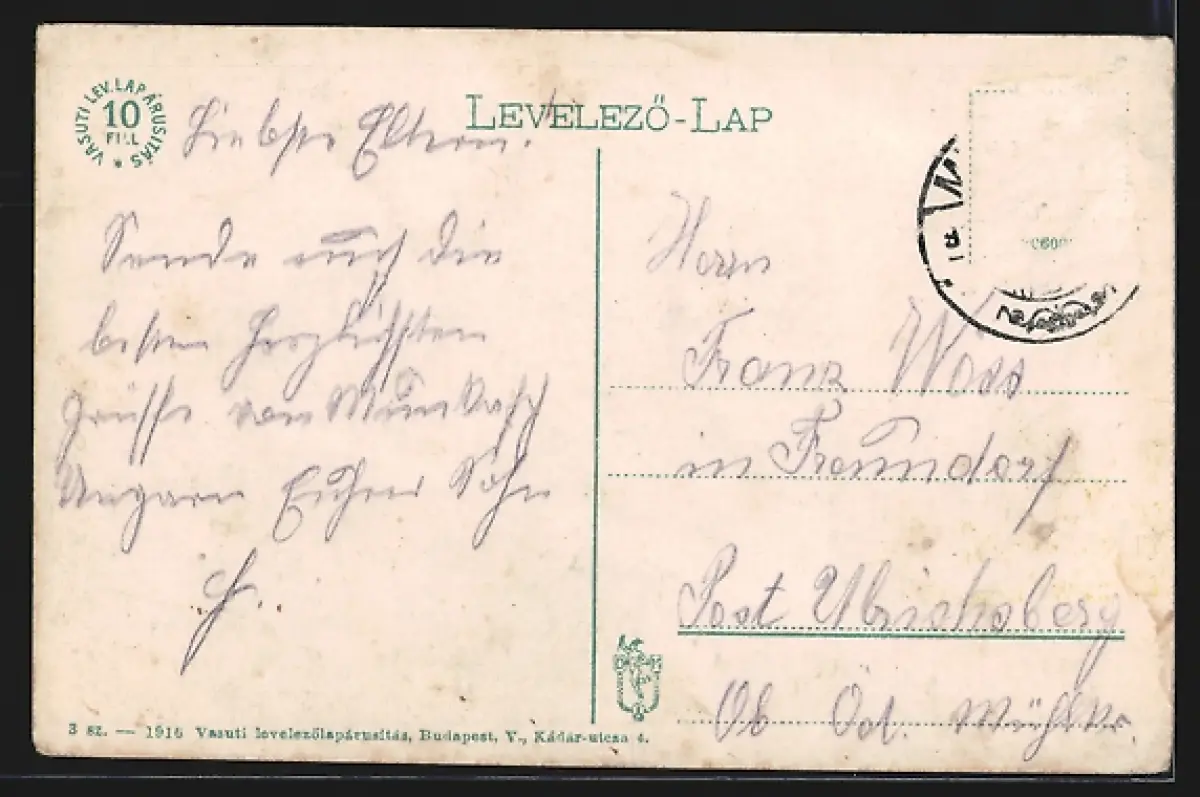 VASUTI LEV.LAPÁRUSITÁS *
10
FILL
LEVELEZŐ-LAP
Liebste Eltern!
Sende euch die
besten herzlichsten
Grüsse von Munkasch
Ungarn Euher Sohn
Herrn
Franz Woss
in Freundorf
Post Ulrichsberg
Ob Öst. Mühlkr.
3 sz. — 1916 Vasuti levelezőlapárusitás, Budapest, V., Kádár-utcza 4.